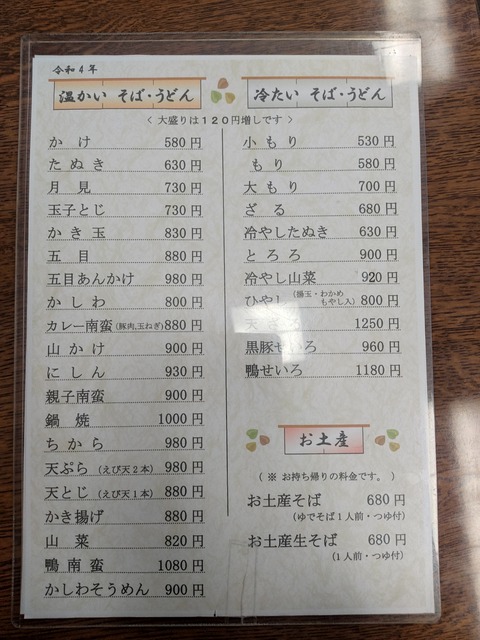 令和4年
温かい そば・うどん
冷たい そば・うどん
〈 大盛りは120円増しです 〉
かけ 580円
たぬき 630円
月見 730円
玉子とじ 730円
かき玉 830円
五目 880円
五目あんかけ 980円
かしわ 800円
カレー南蛮(豚肉,玉ねぎ) 880円
山かけ 900円
にしん 930円
親子南蛮 900円
鍋焼 1000円
ちから 980円
天ぷら(えび天2本) 980円
天とじ(えび天1本) 880円
かき揚げ 880円
山菜 820円
鴨南蛮 1080円
かしわそうめん 900円
小もり 530円
もり 580円
大もり 700円
ざる 680円
冷やしたぬき 630円
とろろ 900円
冷やし山菜 920円
ひやし(揚玉・わかめ もやし入) 800円
天ざる 1250円
黒豚せいろ 960円
鴨せいろ 1180円
お土産
(※ お持ち帰りの料金です。)
お土産そば 680円
(ゆでそば1人前・つゆ付)
お土産生そば 680円
(1人前・つゆ付)